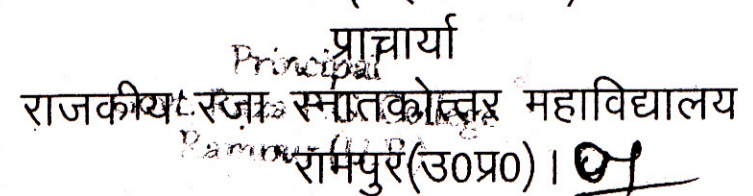 प्राचार्या
Principal
राजकीय रजा स्नातकोत्तर महाविद्यालय
रामपुर(उ०प्र०)।